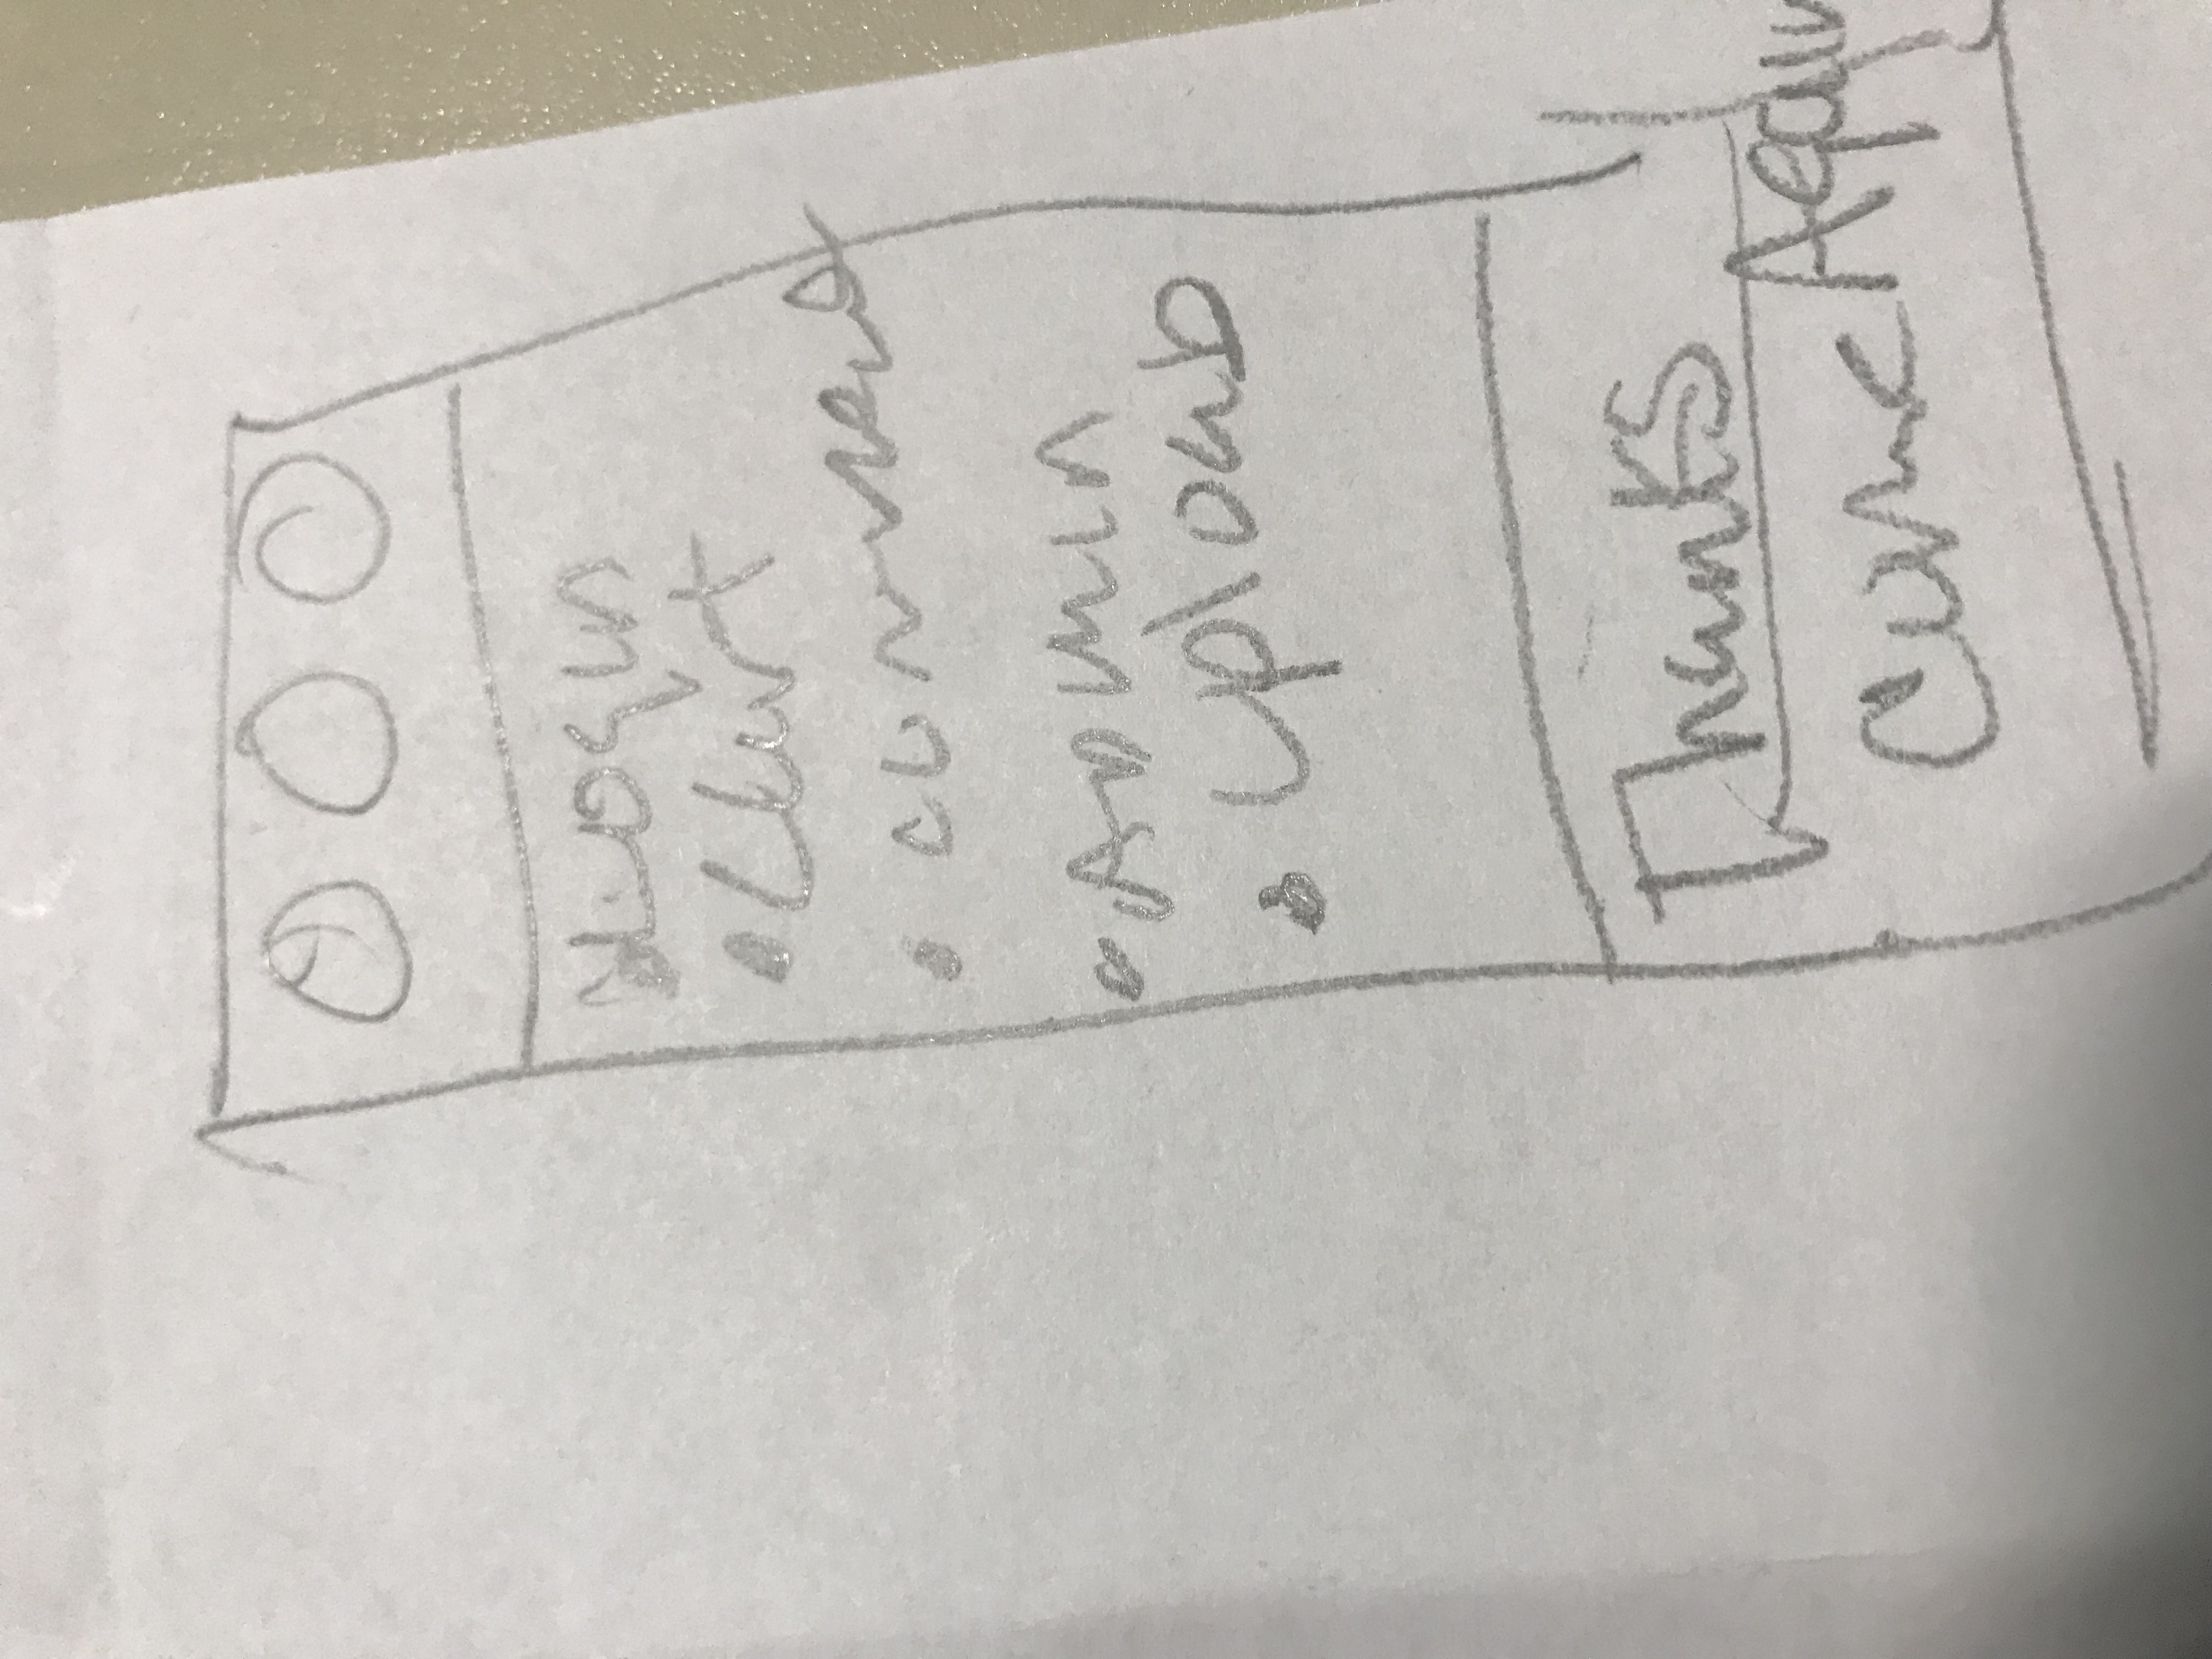 • Login
•
• comment
• Admin
• upload
Thanks
Come Again